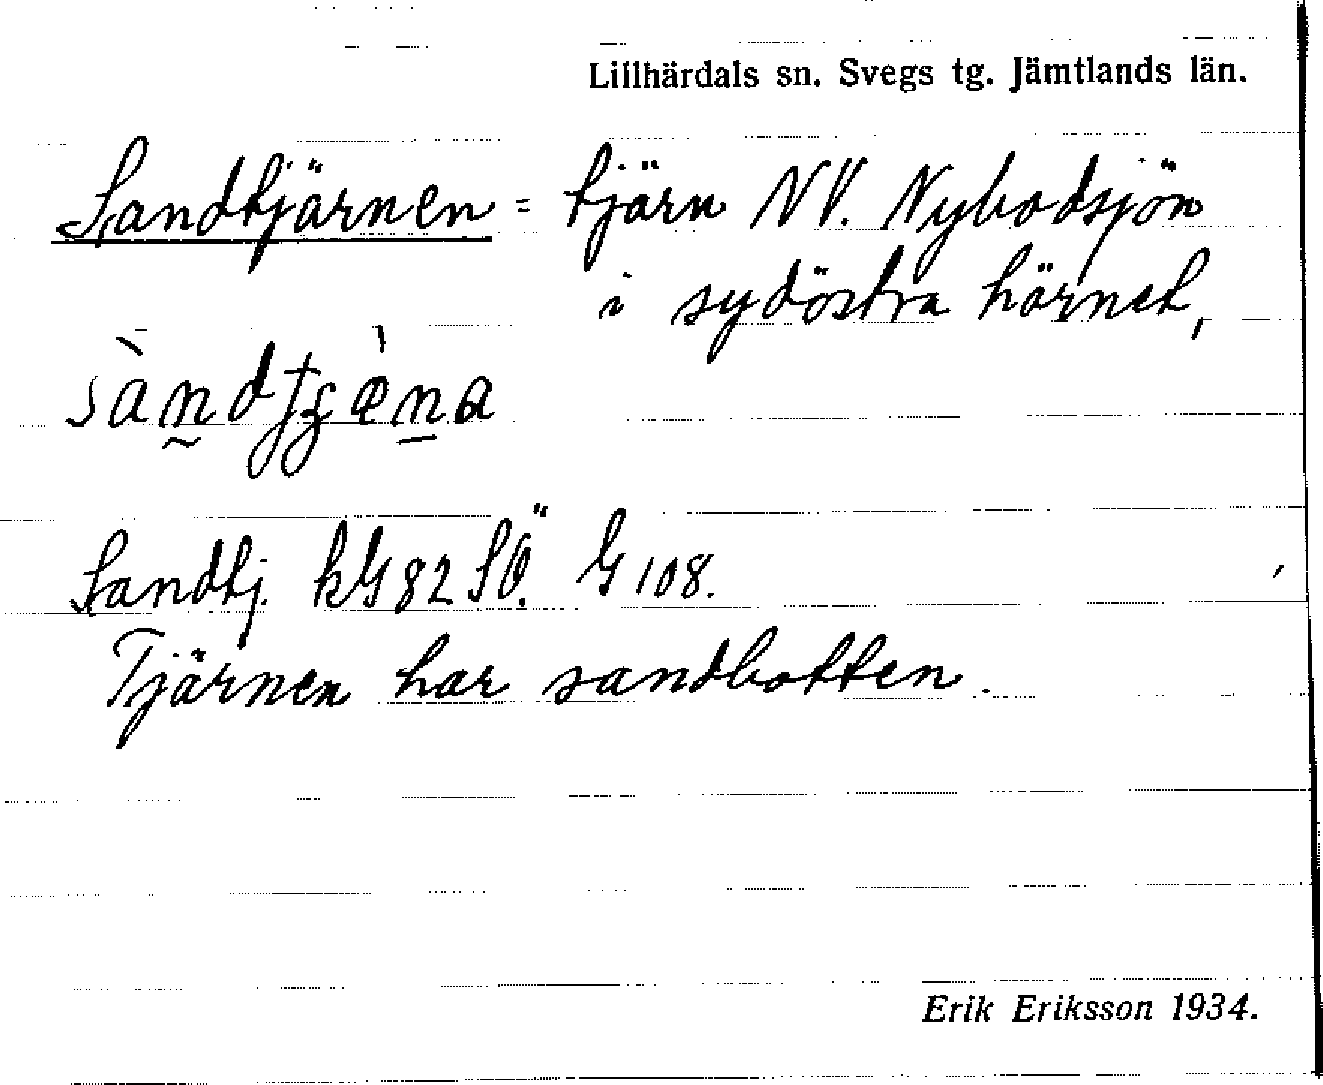 Lillhärdals sn. Svegs tg. Jämtlands län.
Sandtjärnen = tjärn NV. Nybodsjön
i sydöstra hörnet,
Sandtj. kG82SÖ. G108.
Tjärnen har sandbotten.
Erik Eriksson 1934.